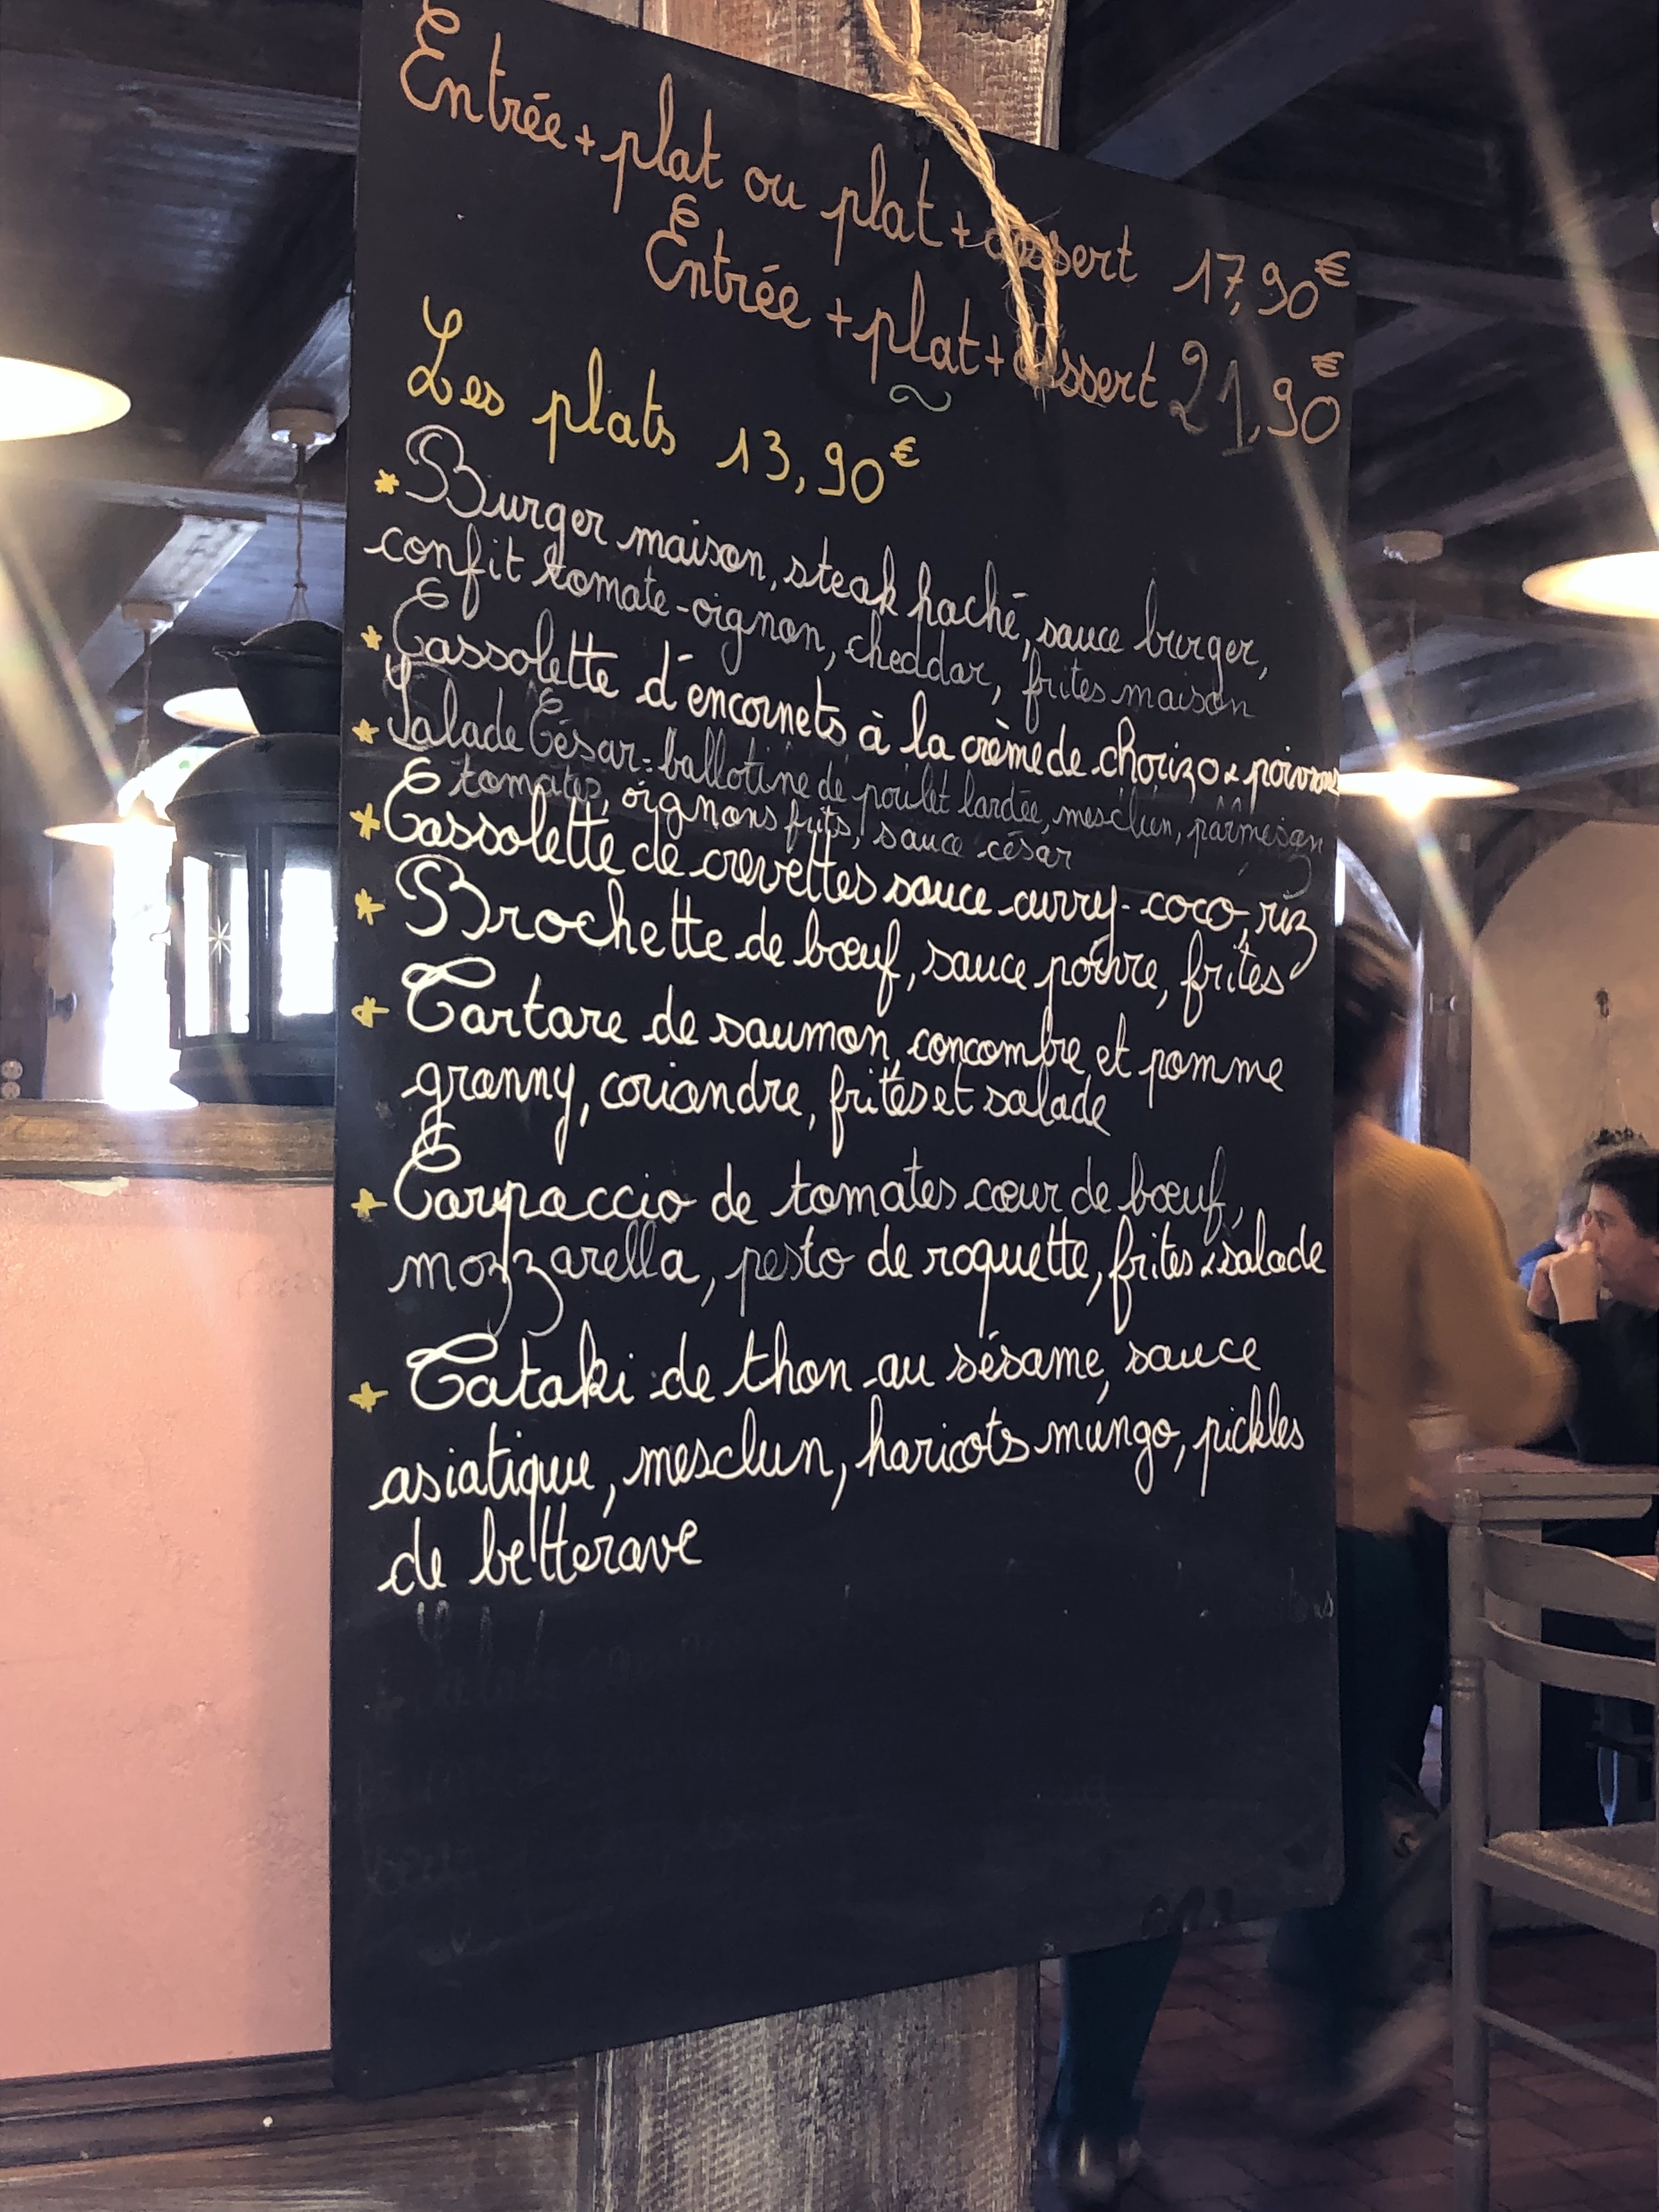 Entrée + plat ou plat + dessert 17,90€
Entrée + plat + dessert 21,90€
Les plats 13,90€
* Burger maison, steak haché, sauce burger,
confit tomate-oignon, cheddar, frites maison
* Cassolette d'encornets à la crème de chorizo & poivrons
* Salade César: ballotine de poulet lardée, mesclun, parmesan
tomates, oignons frits, sauce césar
* Cassolette de crevettes sauce curry-coco, riz
* Brochette de bœuf, sauce poivre, frites
* Tartare de saumon, concombre et pomme
granny, coriandre, frites et salade
* Carpaccio de tomates cœur de bœuf,
mozzarella, pesto de roquette, frites & salade
* Tataki de thon au sésame, sauce
asiatique, mesclun, haricots mungo, pickles
de betterave